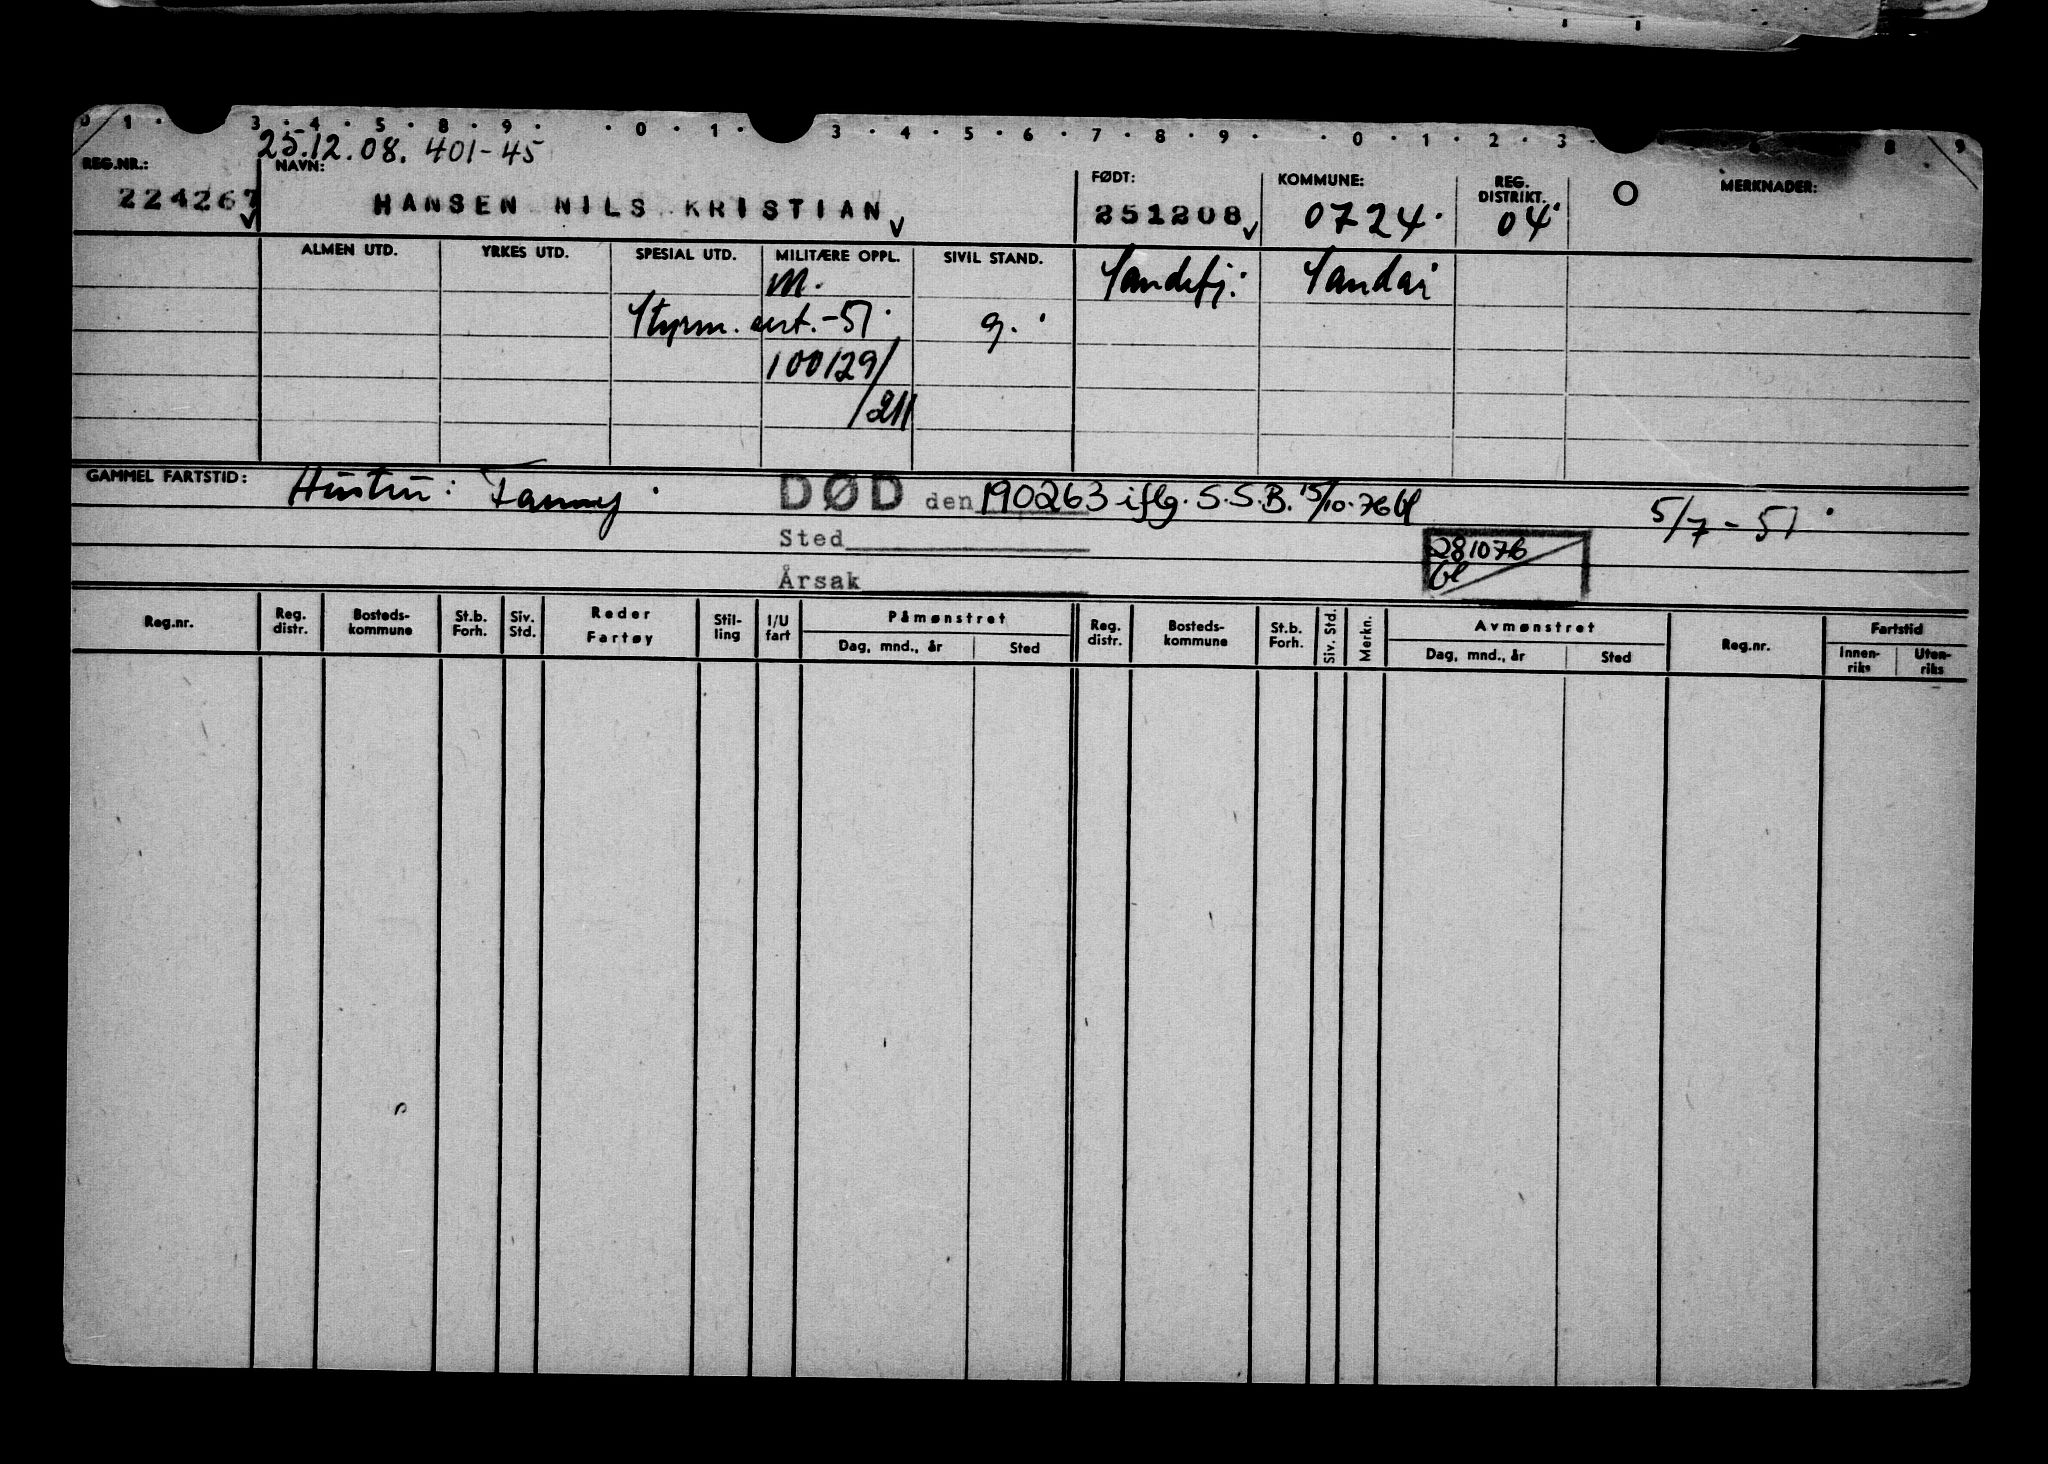 0 1 · 3 · 4 · 5 · 8 · 9 · · 0 · 1 · 3 · 4 · 5 · 6 · 7 · 8 · 9 · · 0 · 1 · 2 · 3 · 6 8 · 9
25.12.08. 401-45
REG.NR.: NAVN: FØDT: KOMMUNE: REG. DISTRIKT. MERKNADER:
224267 HANSEN NILS KRISTIAN 251208 0724. 04
ALMEN UTD. YRKES UTD. SPESIAL UTD. MILITÆRE OPPL. SIVIL STAND. Sandefj. Sandar
M.
Styrm. sert. -51. g.
100129/
/211
GAMMEL FARTSTID: Hustru: Fanny. DØD den 190263 iflg. S.S.B. 15/10-76 bl 5/7-51
Sted 281076
Årsak bl
Reg.nr. Reg. distr. Bosteds-kommune St.b. Forh. Siv. Std. Reder Fartøy Stil-ling I/U fart Påmønstret Reg. distr. Bosteds-kommune St.b. Forh. Siv. Std. Merkn. Avmønstret Reg.nr. Fartstid
Dag, mnd., år Sted Dag, mnd., år Sted Innen-riks Uten-riks